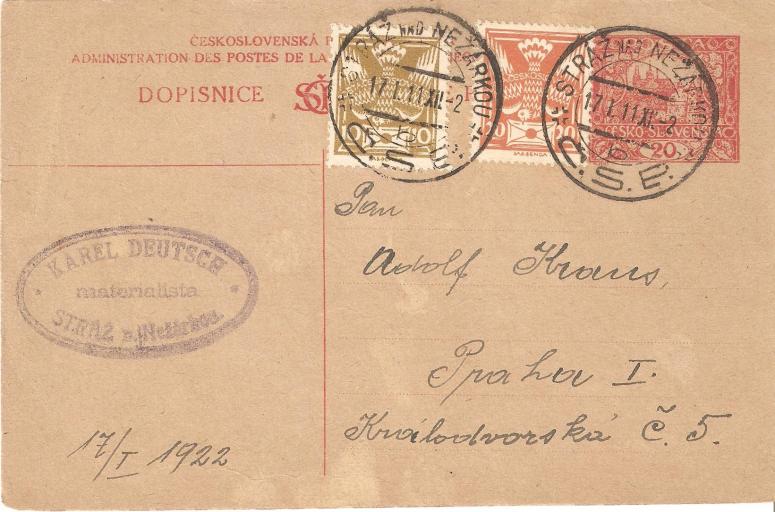 ČESKOSLOVENSKÁ
ADMINISTRATION DES POSTES DE LA
DOPISNICE
STRÁŽ NAD NEŽÁRKOU
17.I.11XII-2
STRÁŽ NAD NEŽÁRKOU
17.I.11XII-2
ČESKO-SLOVENSKÁ
20
Pan
Adolf Kraus,
Praha I.
Králodvorská Č. 5.
KAREL DEUTSCH
materialista
STRÁŽ n./Nežárkou
17/I 1922